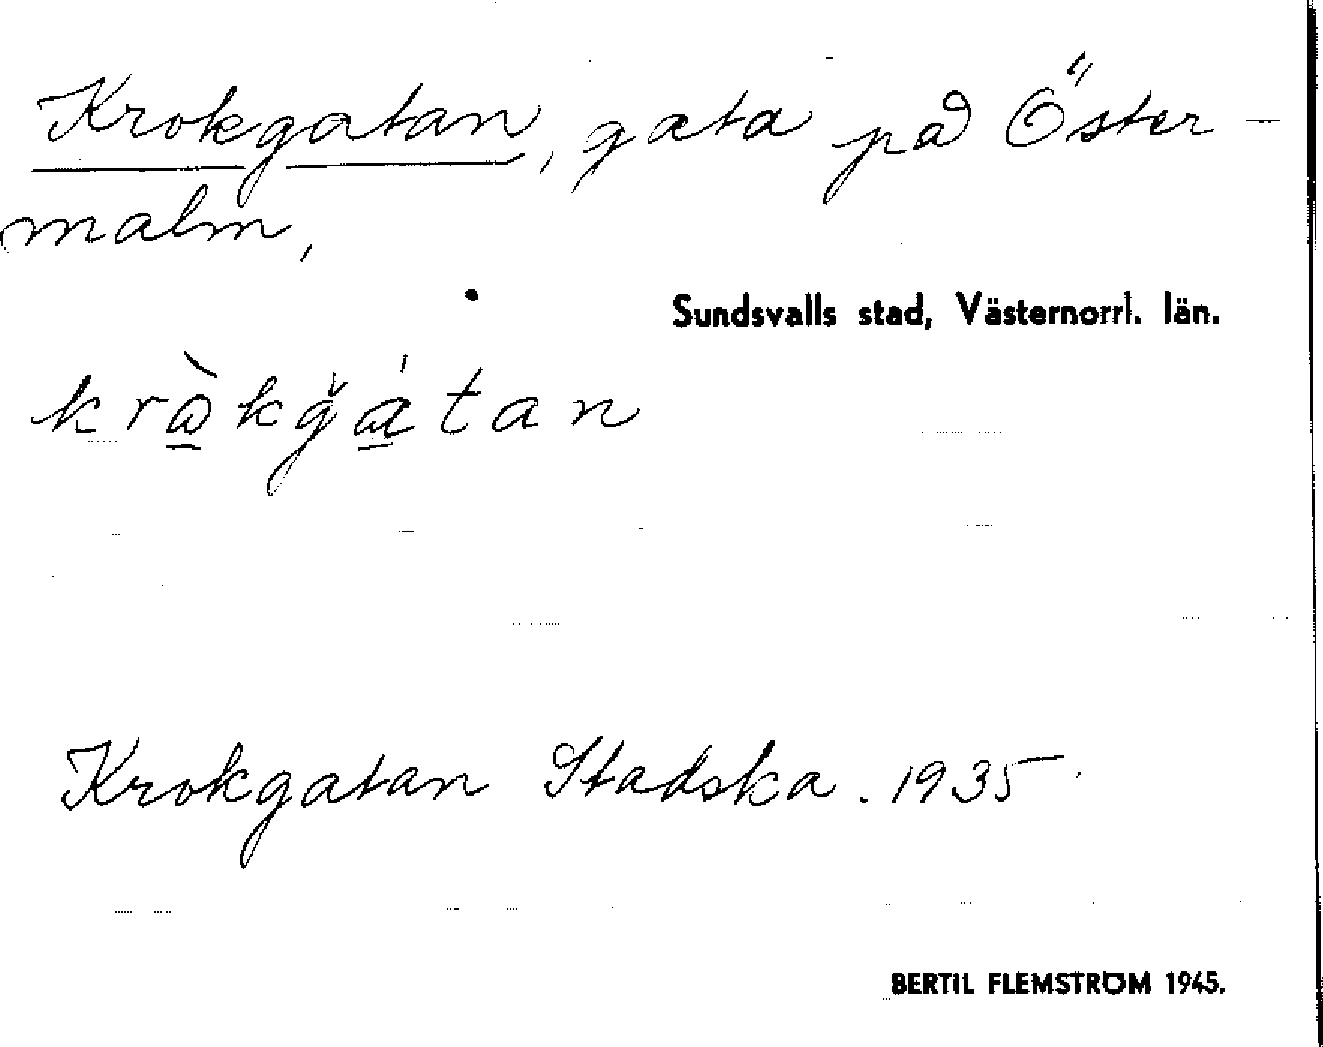 Krokgatan, gata på Öster-
malm,
Sundsvalls stad, Västernorrl. län.
Krokgatan Stadska. 1935
BERTIL FLEMSTRÖM 1945.